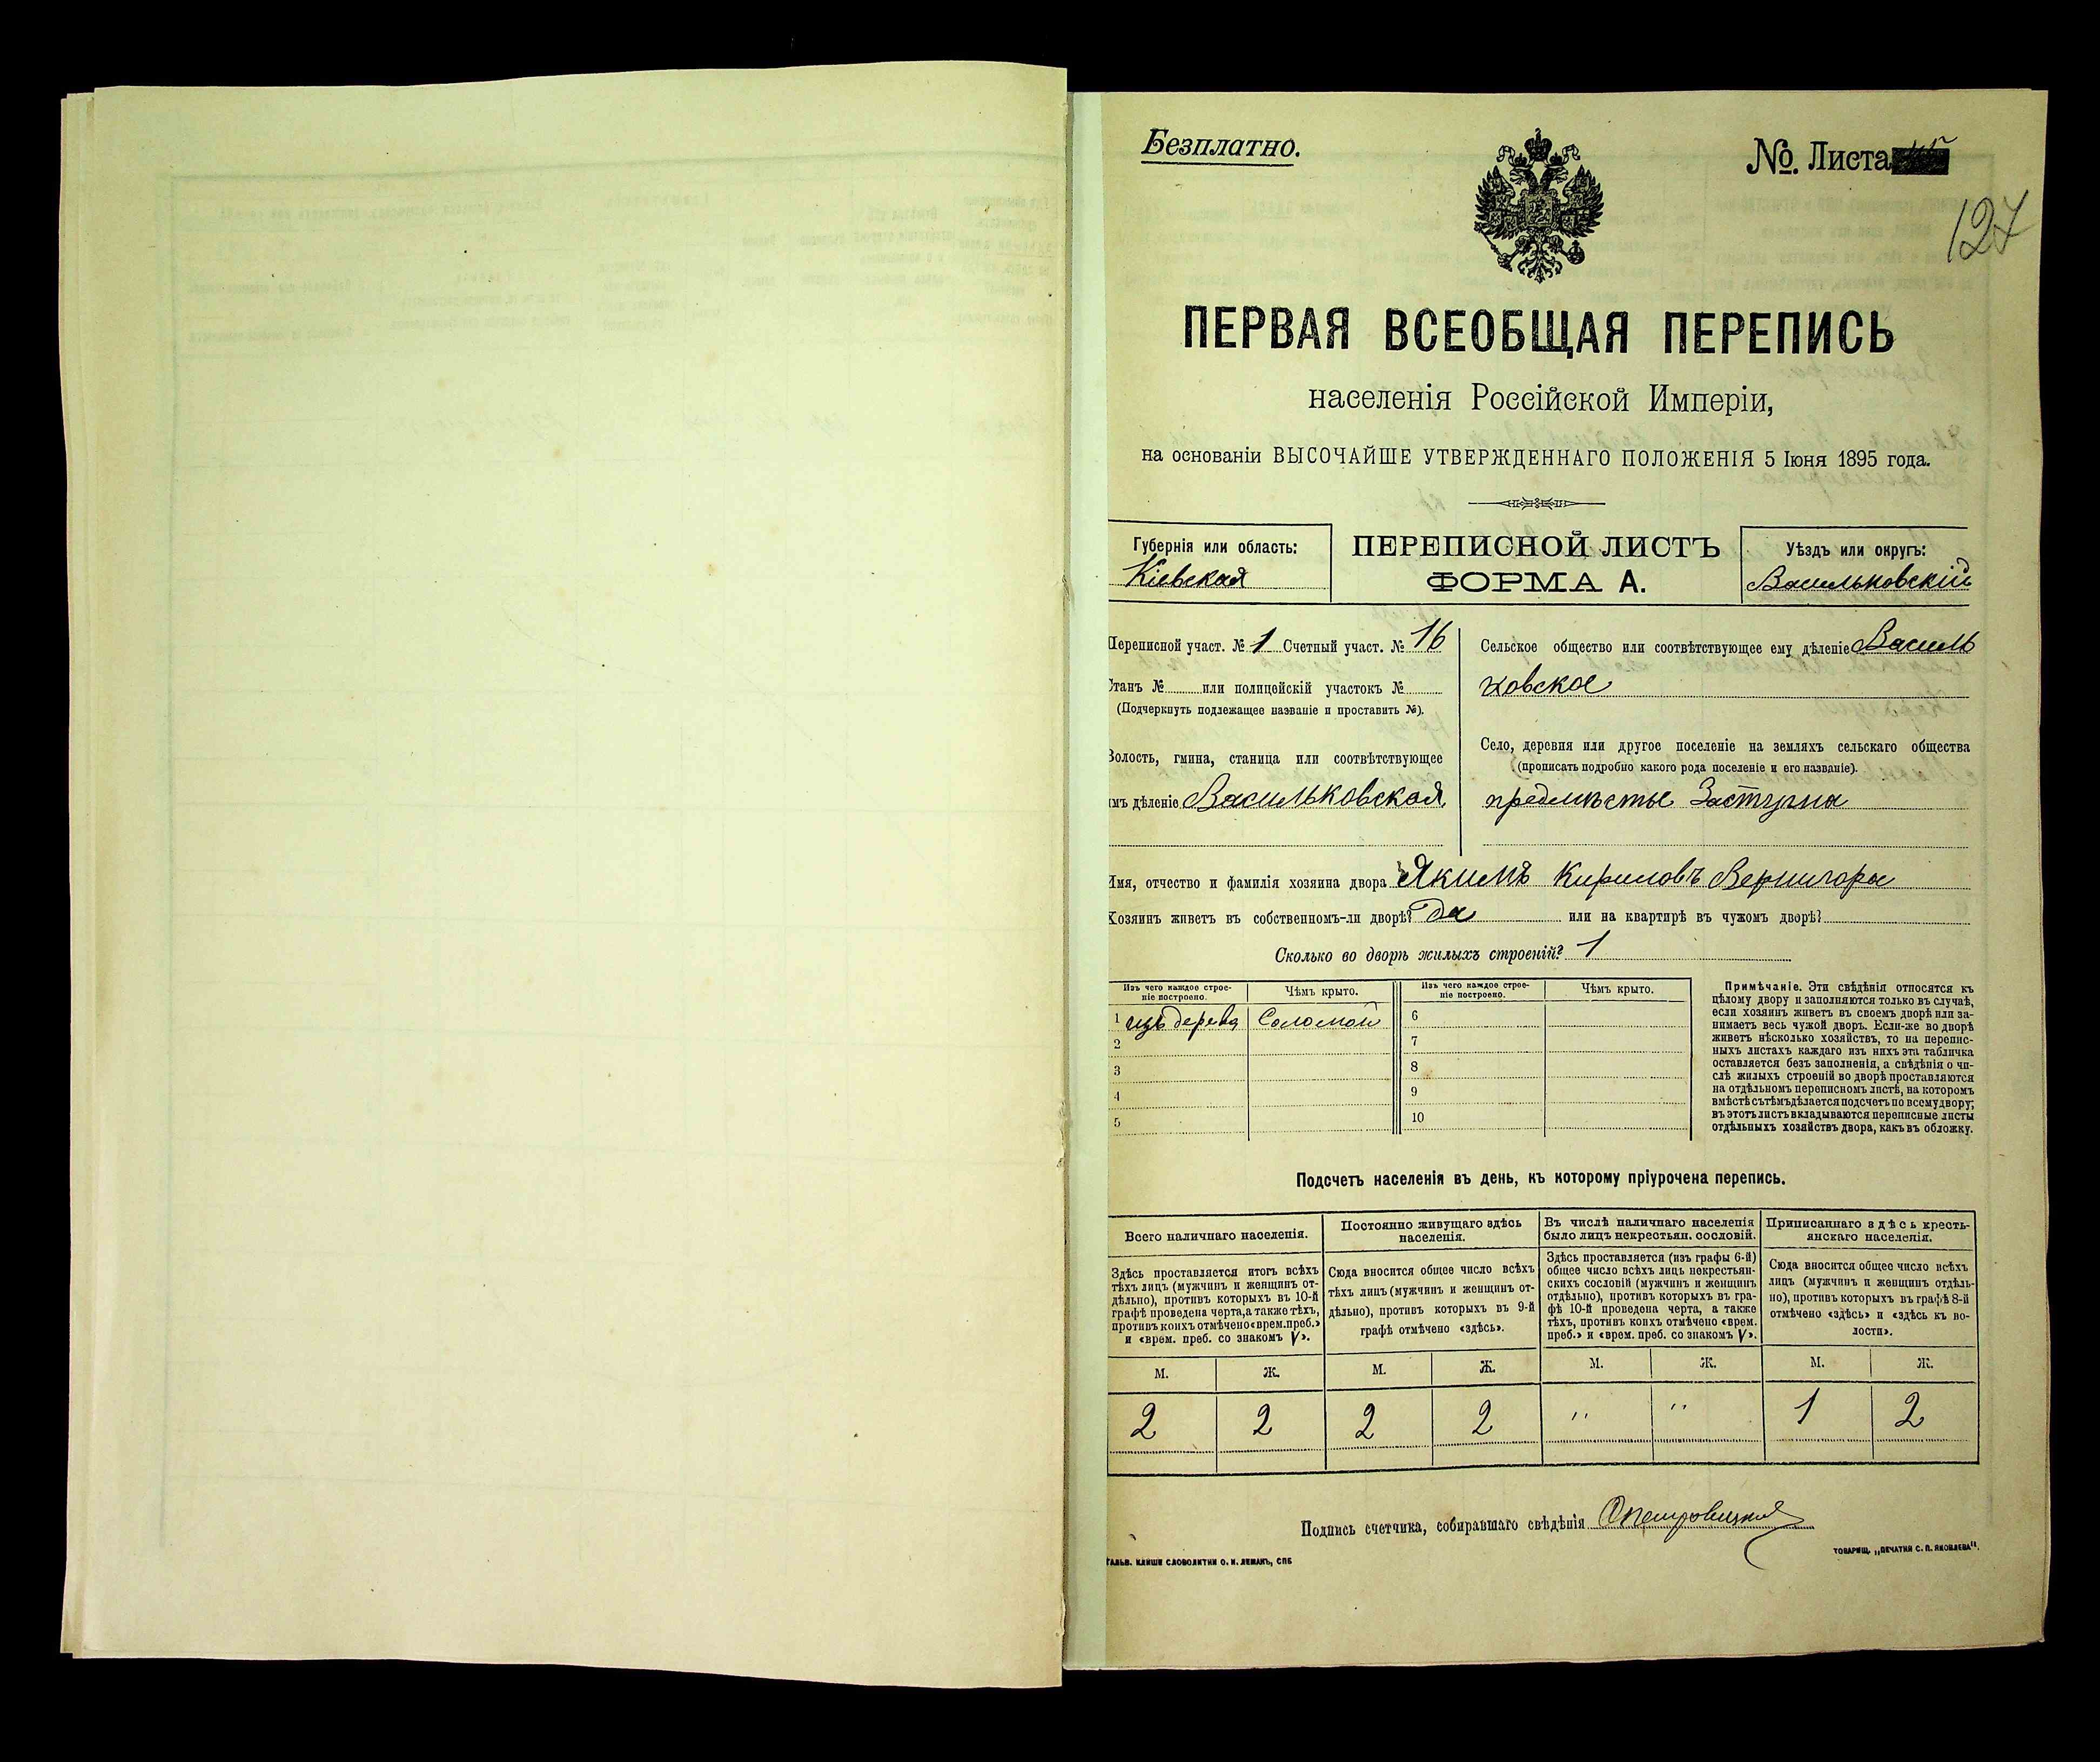 Безплатно.
No. Листа
127
ПЕРВАЯ ВСЕОБЩАЯ ПЕРЕПИСЬ
населенія Россійской Имперіи,
на основаніи ВЫСОЧАЙШЕ УТВЕРЖДЕННАГО ПОЛОЖЕНІЯ 5 Іюня 1895 года.
Губернія или область:
Кіевская
ПЕРЕПИСНОЙ ЛИСТЪ
ФОРМА А.
Уѣздъ или округъ:
Васильковскій
Переписной участ. № 1 Счетный участ. № 16
Станъ № или полицейскій участокъ №
(Подчеркнуть подлежащее названіе и проставить №).
Волость, гмина, станица или соотвѣтствующее
имъ дѣленіе Васильковская
Сельское общество или соотвѣтствующее ему дѣленіе Василь
ковское
Село, деревня или другое поселеніе на земляхъ сельскаго общества
(прописать подробно какого рода поселеніе и его названіе).
предмѣстье Застугна
Имя, отчество и фамилія хозяина двора Якимъ Кириловъ Вернигора
Хозяинъ живетъ въ собственномъ-ли дворѣ? Да или на квартирѣ въ чужомъ дворѣ?
Сколько во дворѣ жилыхъ строеній? 1
Изъ чего каждое строе-
ніе построено.
Чѣмъ крыто.
Изъ чего каждое строе-
ніе построено.
Чѣмъ крыто.
1 изъ дерева Соломой 6
2 7
3 8
4 9
5 10
Примѣчаніе. Эти свѣдѣнія относятся къ
цѣлому двору и заполняются только въ случаѣ,
если хозяинъ живетъ въ своемъ дворѣ или за-
нимаетъ весь чужой дворъ. Если-же во дворѣ
живетъ нѣсколько хозяйствъ, то на перепис-
ныхъ листахъ каждаго изъ нихъ эта табличка
оставляется безъ заполненія, а свѣдѣнія о чи-
слѣ жилыхъ строеній во дворѣ проставляются
на отдѣльномъ переписномъ листѣ, на которомъ
вмѣстѣ съ тѣмъ дѣлается подсчетъ по всему двору;
въ этотъ листъ вкладываются переписные листы
отдѣльныхъ хозяйствъ двора, какъ въ обложку.
Подсчетъ населенія въ день, къ которому пріурочена перепись.
Всего наличнаго населенія.
Здѣсь проставляется итогъ всѣхъ
тѣхъ лицъ (мужчинъ и женщинъ от-
дѣльно), противъ которыхъ въ 10-й
графѣ проведена черта, а также тѣхъ,
противъ коихъ отмѣчено «врем. преб.»
и «врем. преб. со знакомъ V».
Постоянно живущаго здѣсь
населенія.
Сюда вносится общее число всѣхъ
тѣхъ лицъ (мужчинъ и женщинъ от-
дѣльно), противъ которыхъ въ 9-й
графѣ отмѣчено «здѣсь».
Въ числѣ наличнаго населенія
было лицъ некрестьян. сословій.
Здѣсь проставляется (изъ графы 6-й)
общее число всѣхъ лицъ некрестьян-
скихъ сословій (мужчинъ и женщинъ
отдѣльно), противъ которыхъ въ гра-
фѣ 10-й проведена черта, а также
тѣхъ, противъ коихъ отмѣчено «врем.
преб.» и «врем. преб. со знакомъ V».
Приписаннаго здѣсь кресть-
янскаго населенія.
Сюда вносится общее число всѣхъ
лицъ (мужчинъ и женщинъ отдѣль-
но), противъ которыхъ въ графѣ 8-й
отмѣчено «здѣсь» и «здѣсь къ во-
лости».
М. Ж. М. Ж. М. Ж. М. Ж.
2 2 2 2 " " 1 2
Подпись счетчика, собиравшаго свѣдѣнія
ГАЛЬВ. КЛИШЕ СЛОВОЛИТНИ О. И. ЛЕМАНЪ, СПБ
ТОВАРИЩ. „ПЕЧАТНЯ С. П. ЯКОВЛЕВА".